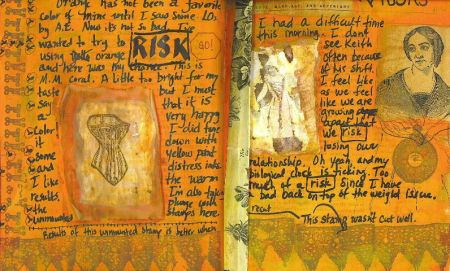 Orange has not been a favorite
color of mine until I saw some
by A.E. Now its not so bad. I've
wanted to try to RISK
GO!
using orange
and here was my chance. This is
M.M. Coral. A little too bright for my
taste but I must
say that it is
a very happy
color I did tone
it down with
some Yellow paint
and distress inks.
I like the warm
results. I'm also taking
the plunge with
unmounted stamps here.
Results of this unmounted stamp is better when
I had a difficult time
this morning. I don't
see Keith
often because
of his shift.
I feel like
as we feel
like we are
growing
apart. What
we risk
losing our
relationship. Oh yeah, and my
biological clock is ticking. Too
much of a risk since I have
a bad back on top of the weight issue.
This stamp wasn't cut well.